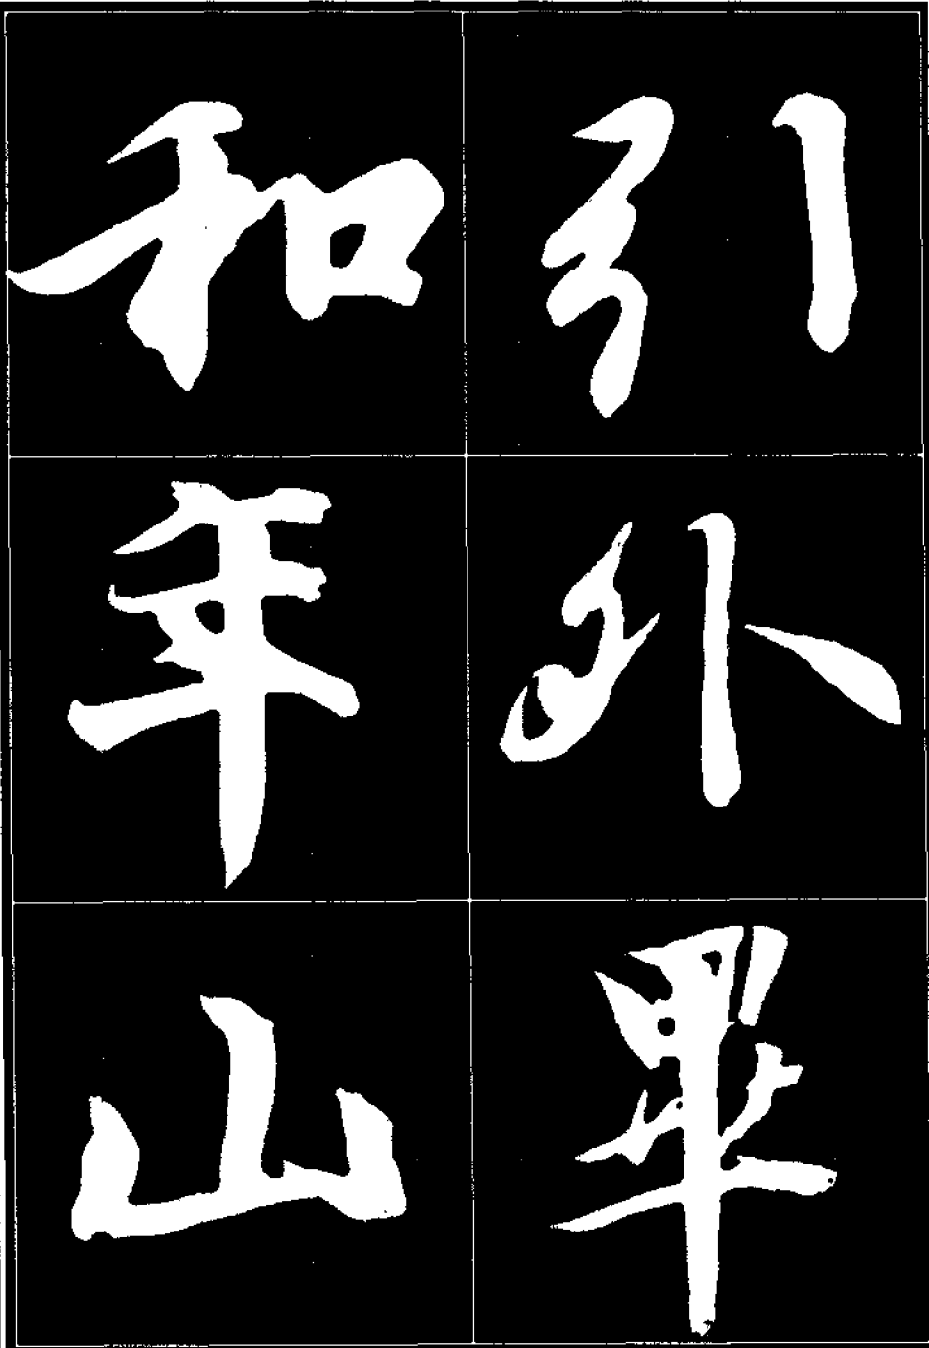 引外畢
和年山